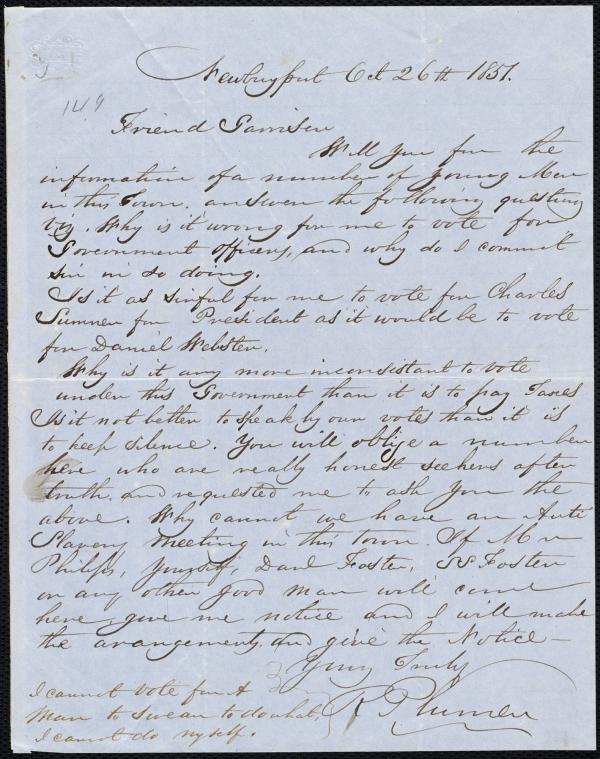 Newburyport Oct 26th 1851.
14.9
Friend Garrison
Will you for the
information of a number of young Men
in this Town, answer the following questions
viz. Why is it wrong for me to vote for
Government officers, and why do I commit
sin in so doing.
Is it as sinful for me to vote for Charles
Sumner for President as it would be to vote
for Daniel Webster.
Why is it any more inconsistant to vote
under this Government than it is to pay Taxes
Is it not better to speak by our votes than it is
to keep silence. You will oblige a number
here who are really honest seekers after
truth, and requested me to ask you the
above. Why cannot we have an Anti
Slavery Meeting in this town. If Mr
Philips, yourself, Danl Foster, SS Foster
or any other good man will come
here, give me notice and I will make
the arangements, and give the Notice —
Yours Truly
R Plumer
I cannot vote for A
Man to swear to do what
I cannot do myself.